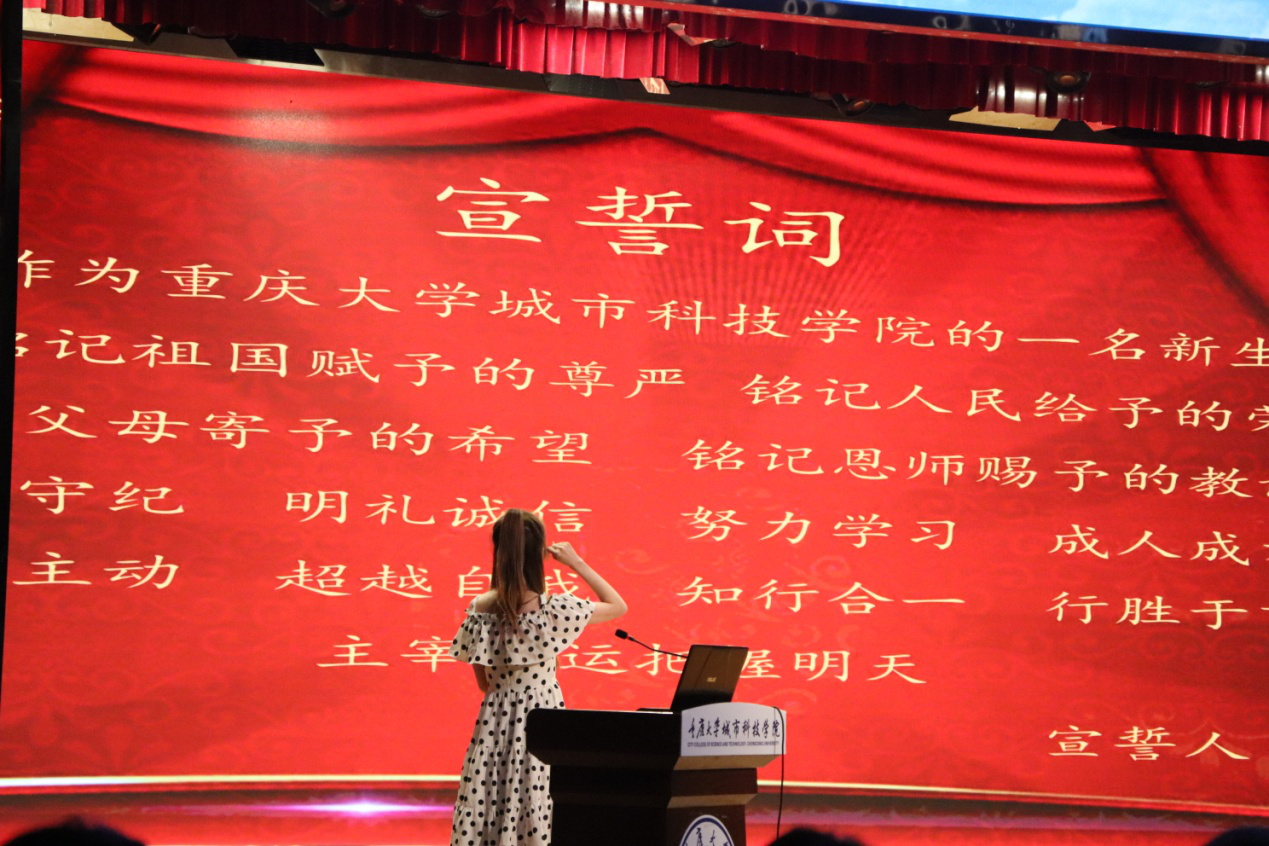 宣誓词
作为重庆大学城市科技学院的一名新生
铭记祖国赋予的尊严 铭记人民给予的
父母寄予的希望 铭记恩师赐予的教
守纪 明礼诚信 努力学习 成人成
主动 超越自我 知行合一 行胜于
主宰 运把握明天
宣誓人
重庆大学城市科技学院
CITY COLLEGE OF SCIENCE AND TECHNOLOGY, CHONGQING UNIVERSITY